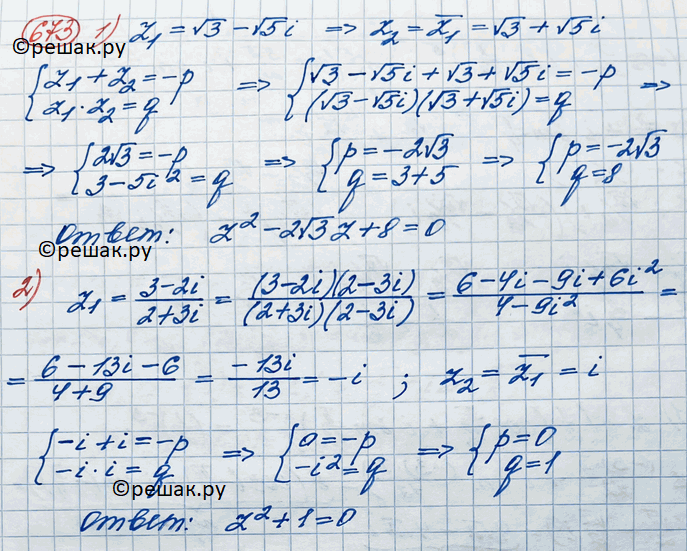 673 1) z₁ = √3 − √5 i => z₂ = z̄₁ = √3 + √5 i
©решак.ру
{ z₁ + z₂ = −p => { √3 − √5 i + √3 + √5 i = −p =>
z₁ · z₂ = q (√3 − √5 i)(√3 + √5 i) = q
=> { 2√3 = −p => { p = −2√3 => { p = −2√3
3 − 5i² = q q = 3 + 5 q = 8
Ответ: z² − 2√3 z + 8 = 0
©решак.ру
2) z₁ = (3 − 2i)/(2 + 3i) = ((3 − 2i)(2 − 3i))/((2 + 3i)(2 − 3i)) = (6 − 4i − 9i + 6i²)/(4 − 9i²) =
= (6 − 13i − 6)/(4 + 9) = (−13i)/13 = −i ; z₂ = z̄₁ = i
{ −i + i = −p => { 0 = −p => { p = 0
−i · i = q −i² = q q = 1
©решак.ру
Ответ: z² + 1 = 0